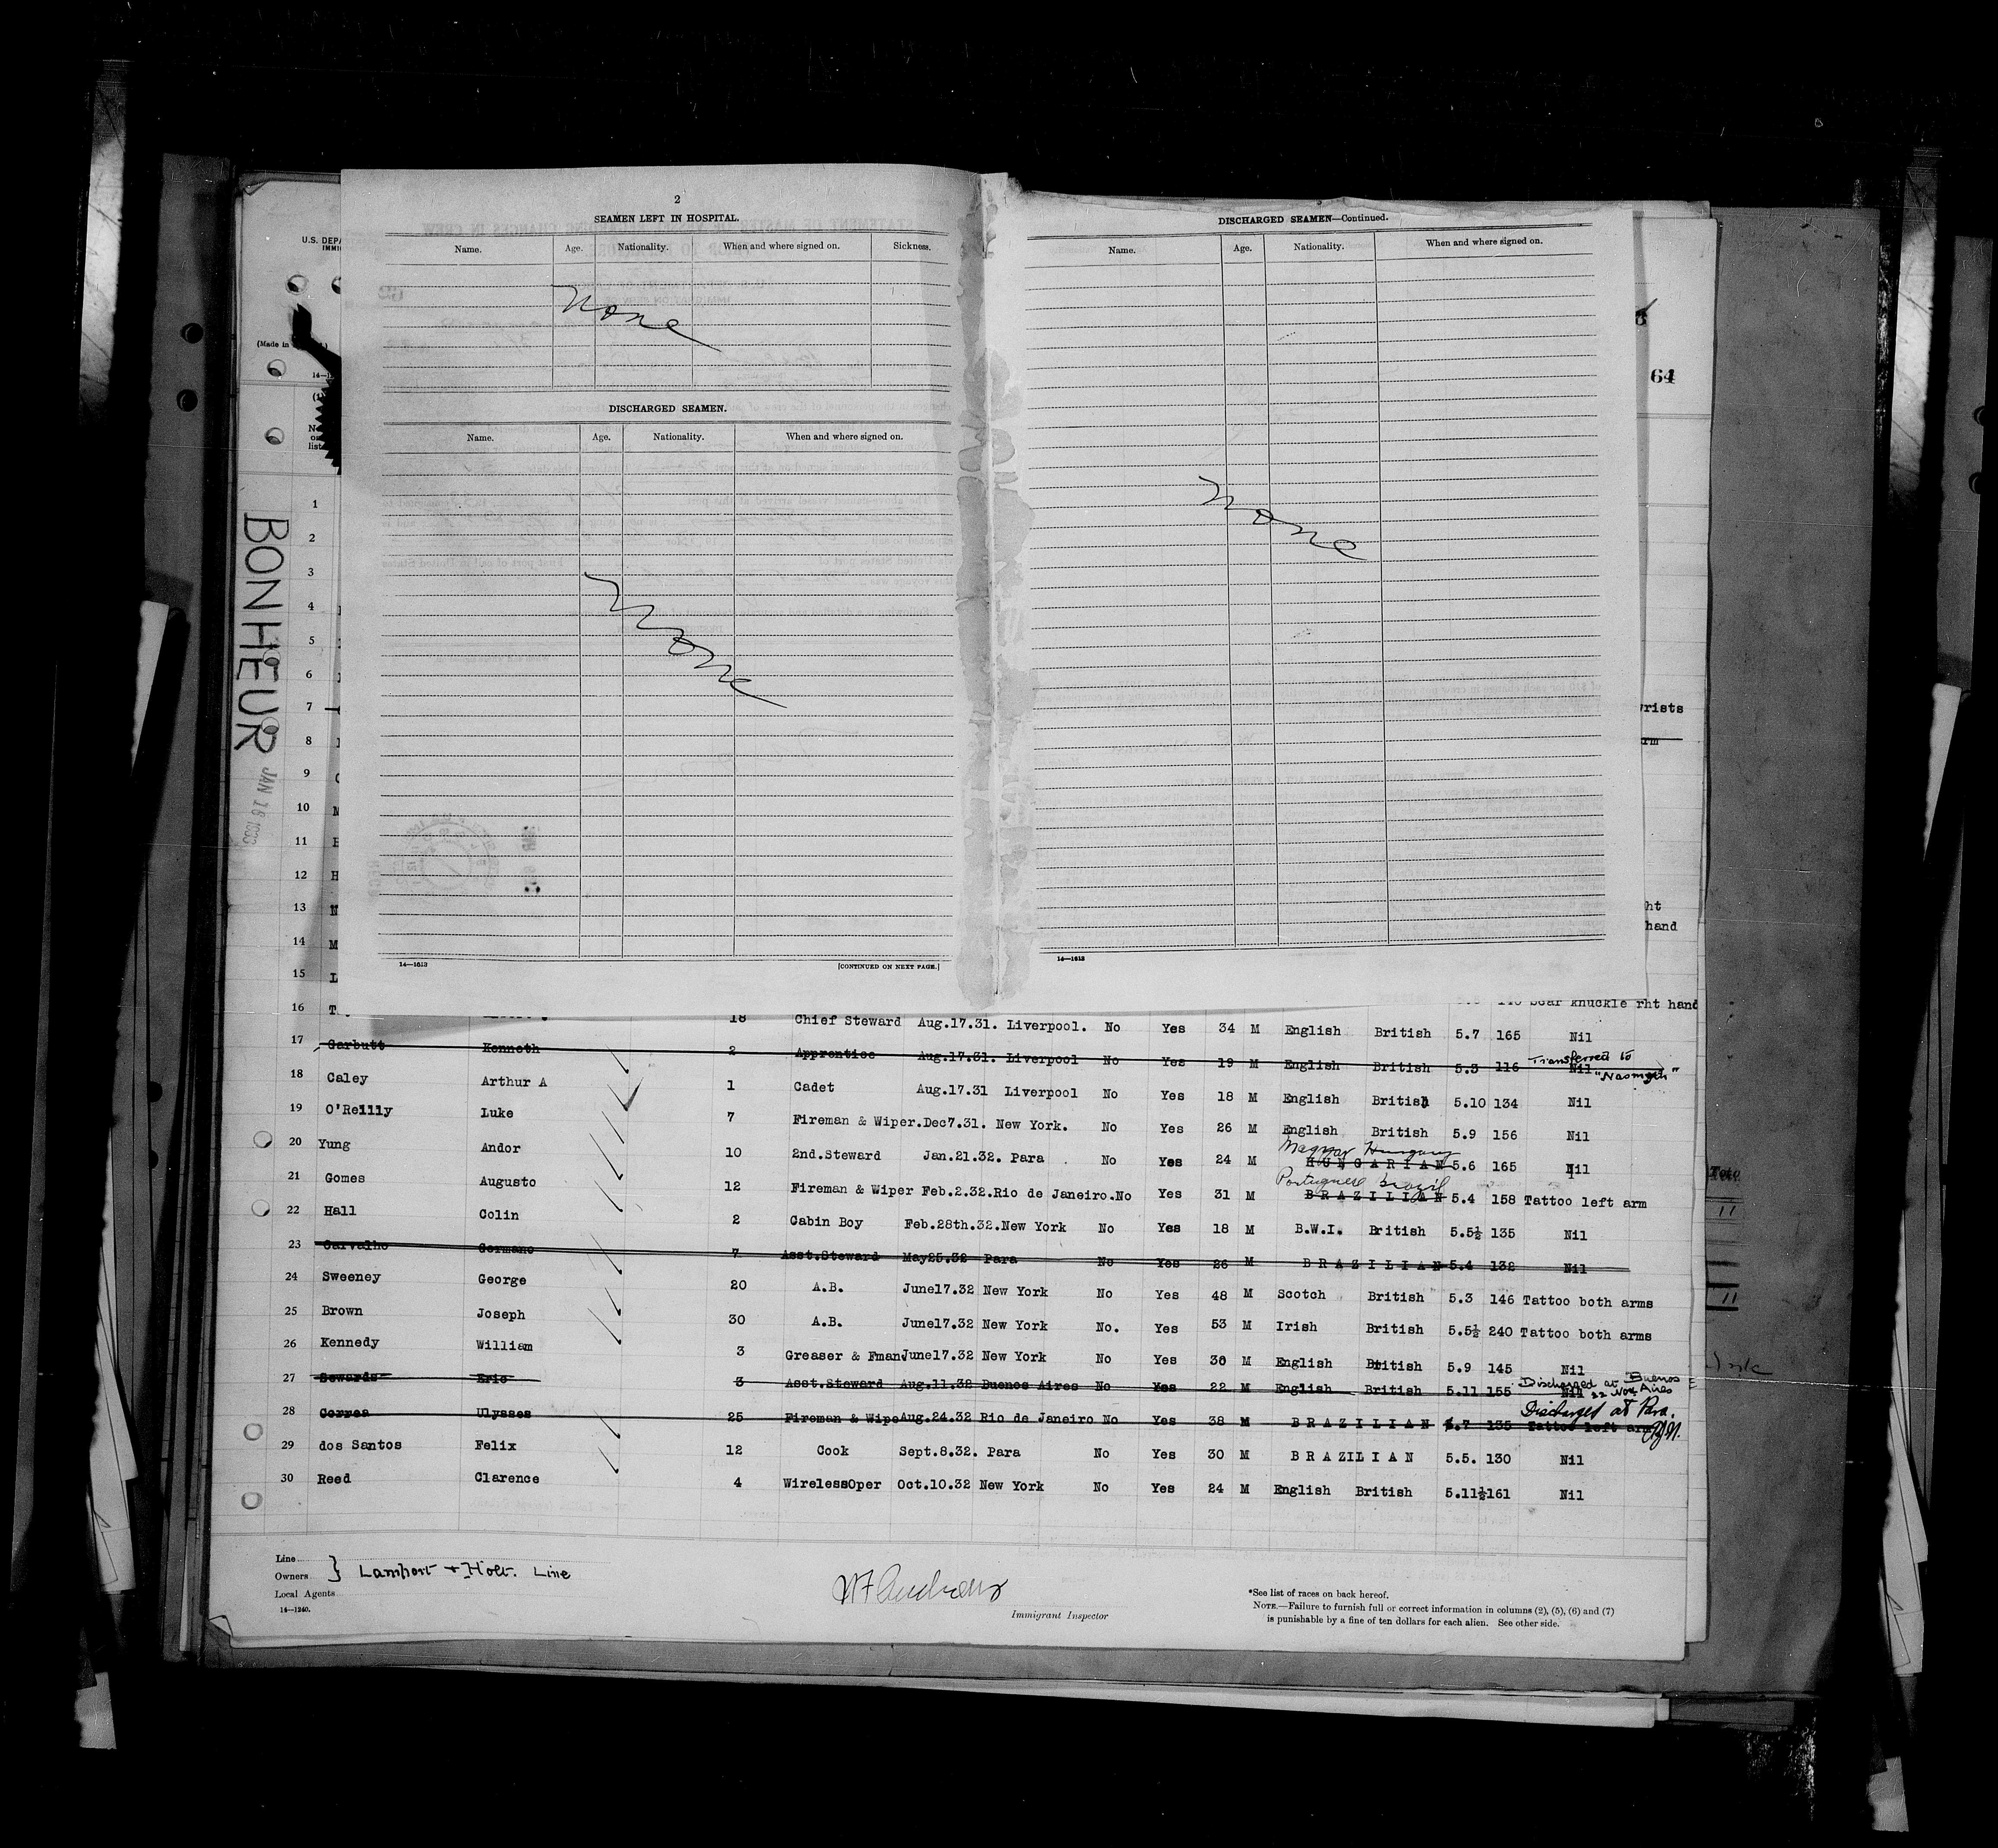 2
SEAMEN LEFT IN HOSPITAL.
Name. Age. Nationality. When and where signed on. Sickness.
None
DISCHARGED SEAMEN.
Name. Age. Nationality. When and where signed on.
None
14—1613
[CONTINUED ON NEXT PAGE.]
DISCHARGED SEAMEN—Continued.
Name. Age. Nationality. When and where signed on.
None
14—1613
U.S. DEPA
IMMI
(Made in
64
BONHEUR
JAN 18 1933
1
2
3
4
5
6
7
8
9
10
11
12
13
14
15
wrists
arm
ht
hand
Scar knuckle rht hand
16 18 Chief Steward Aug.17.31. Liverpool. No Yes 34 M English British 5.7 165 Nil
17 Garbutt Kenneth 2 Apprentice Aug.17.31. Liverpool No Yes 19 M English British 5.3 116 Nil Transferred to
"Nasmyth"
18 Caley Arthur A 1 Cadet Aug.17.31 Liverpool No Yes 18 M English British 5.10 134 Nil
19 O'Reilly Luke 7 Fireman & Wiper.Dec7.31. New York. No Yes 26 M English British 5.9 156 Nil
Magyar Hungary
20 Yung Andor 10 2nd.Steward Jan.21.32. Para . No Yes 24 M HUNGARIAN 5.6 165 Nil
Portuguese Brazil
21 Gomes Augusto 12 Fireman & Wiper Feb.2.32.Rio de Janeiro.No Yes 31 M BRAZILIAN 5.4 158 Tattoo left arm
22 Hall Colin 2 Cabin Boy Feb.28th.32.New York No Yes 18 M B.W.I. British 5.5½ 135 Nil
23 Carvalho Germano 7 Asst.Steward May25.32 Para No Yes 26 M BRAZILIAN 5.4 132 Nil
24 Sweeney George 20 A.B. June17.32 New York No Yes 48 M Scotch British 5.3 146 Tattoo both arms
25 Brown Joseph 30 A.B. June17.32 New York No. Yes 53 M Irish British 5.5½ 240 Tattoo both arms
26 Kennedy William 3 Greaser & Fman.June17.32 New York No Yes 30 M English British 5.9 145 Nil
27 Sewards Eric 3 Asst.Steward Aug.11.32 Buenos Aires No Yes 22 M English British 5.11 155 Nil Discharged at Buenos
Aires 22 Nov
28 Correa Ulysses 25 Fireman & Wipe Aug.24.32 Rio de Janeiro No Yes 38 M BRAZILIAN 5.7 135 Tattoo left arm Discharged at Para.
29 dos Santos Felix 12 Cook Sept.8.32. Para No Yes 30 M BRAZILIAN 5.5. 130 Nil
30 Reed Clarence 4 WirelessOper Oct.10.32 New York No Yes 24 M English British 5.11½ 161 Nil
Line
Owners } Lamport + Holt. Line
Local Agents
14—1240.
Immigrant Inspector
*See list of races on back hereof.
NOTE.—Failure to furnish full or correct information in columns (2), (5), (6) and (7)
is punishable by a fine of ten dollars for each alien. See other side.